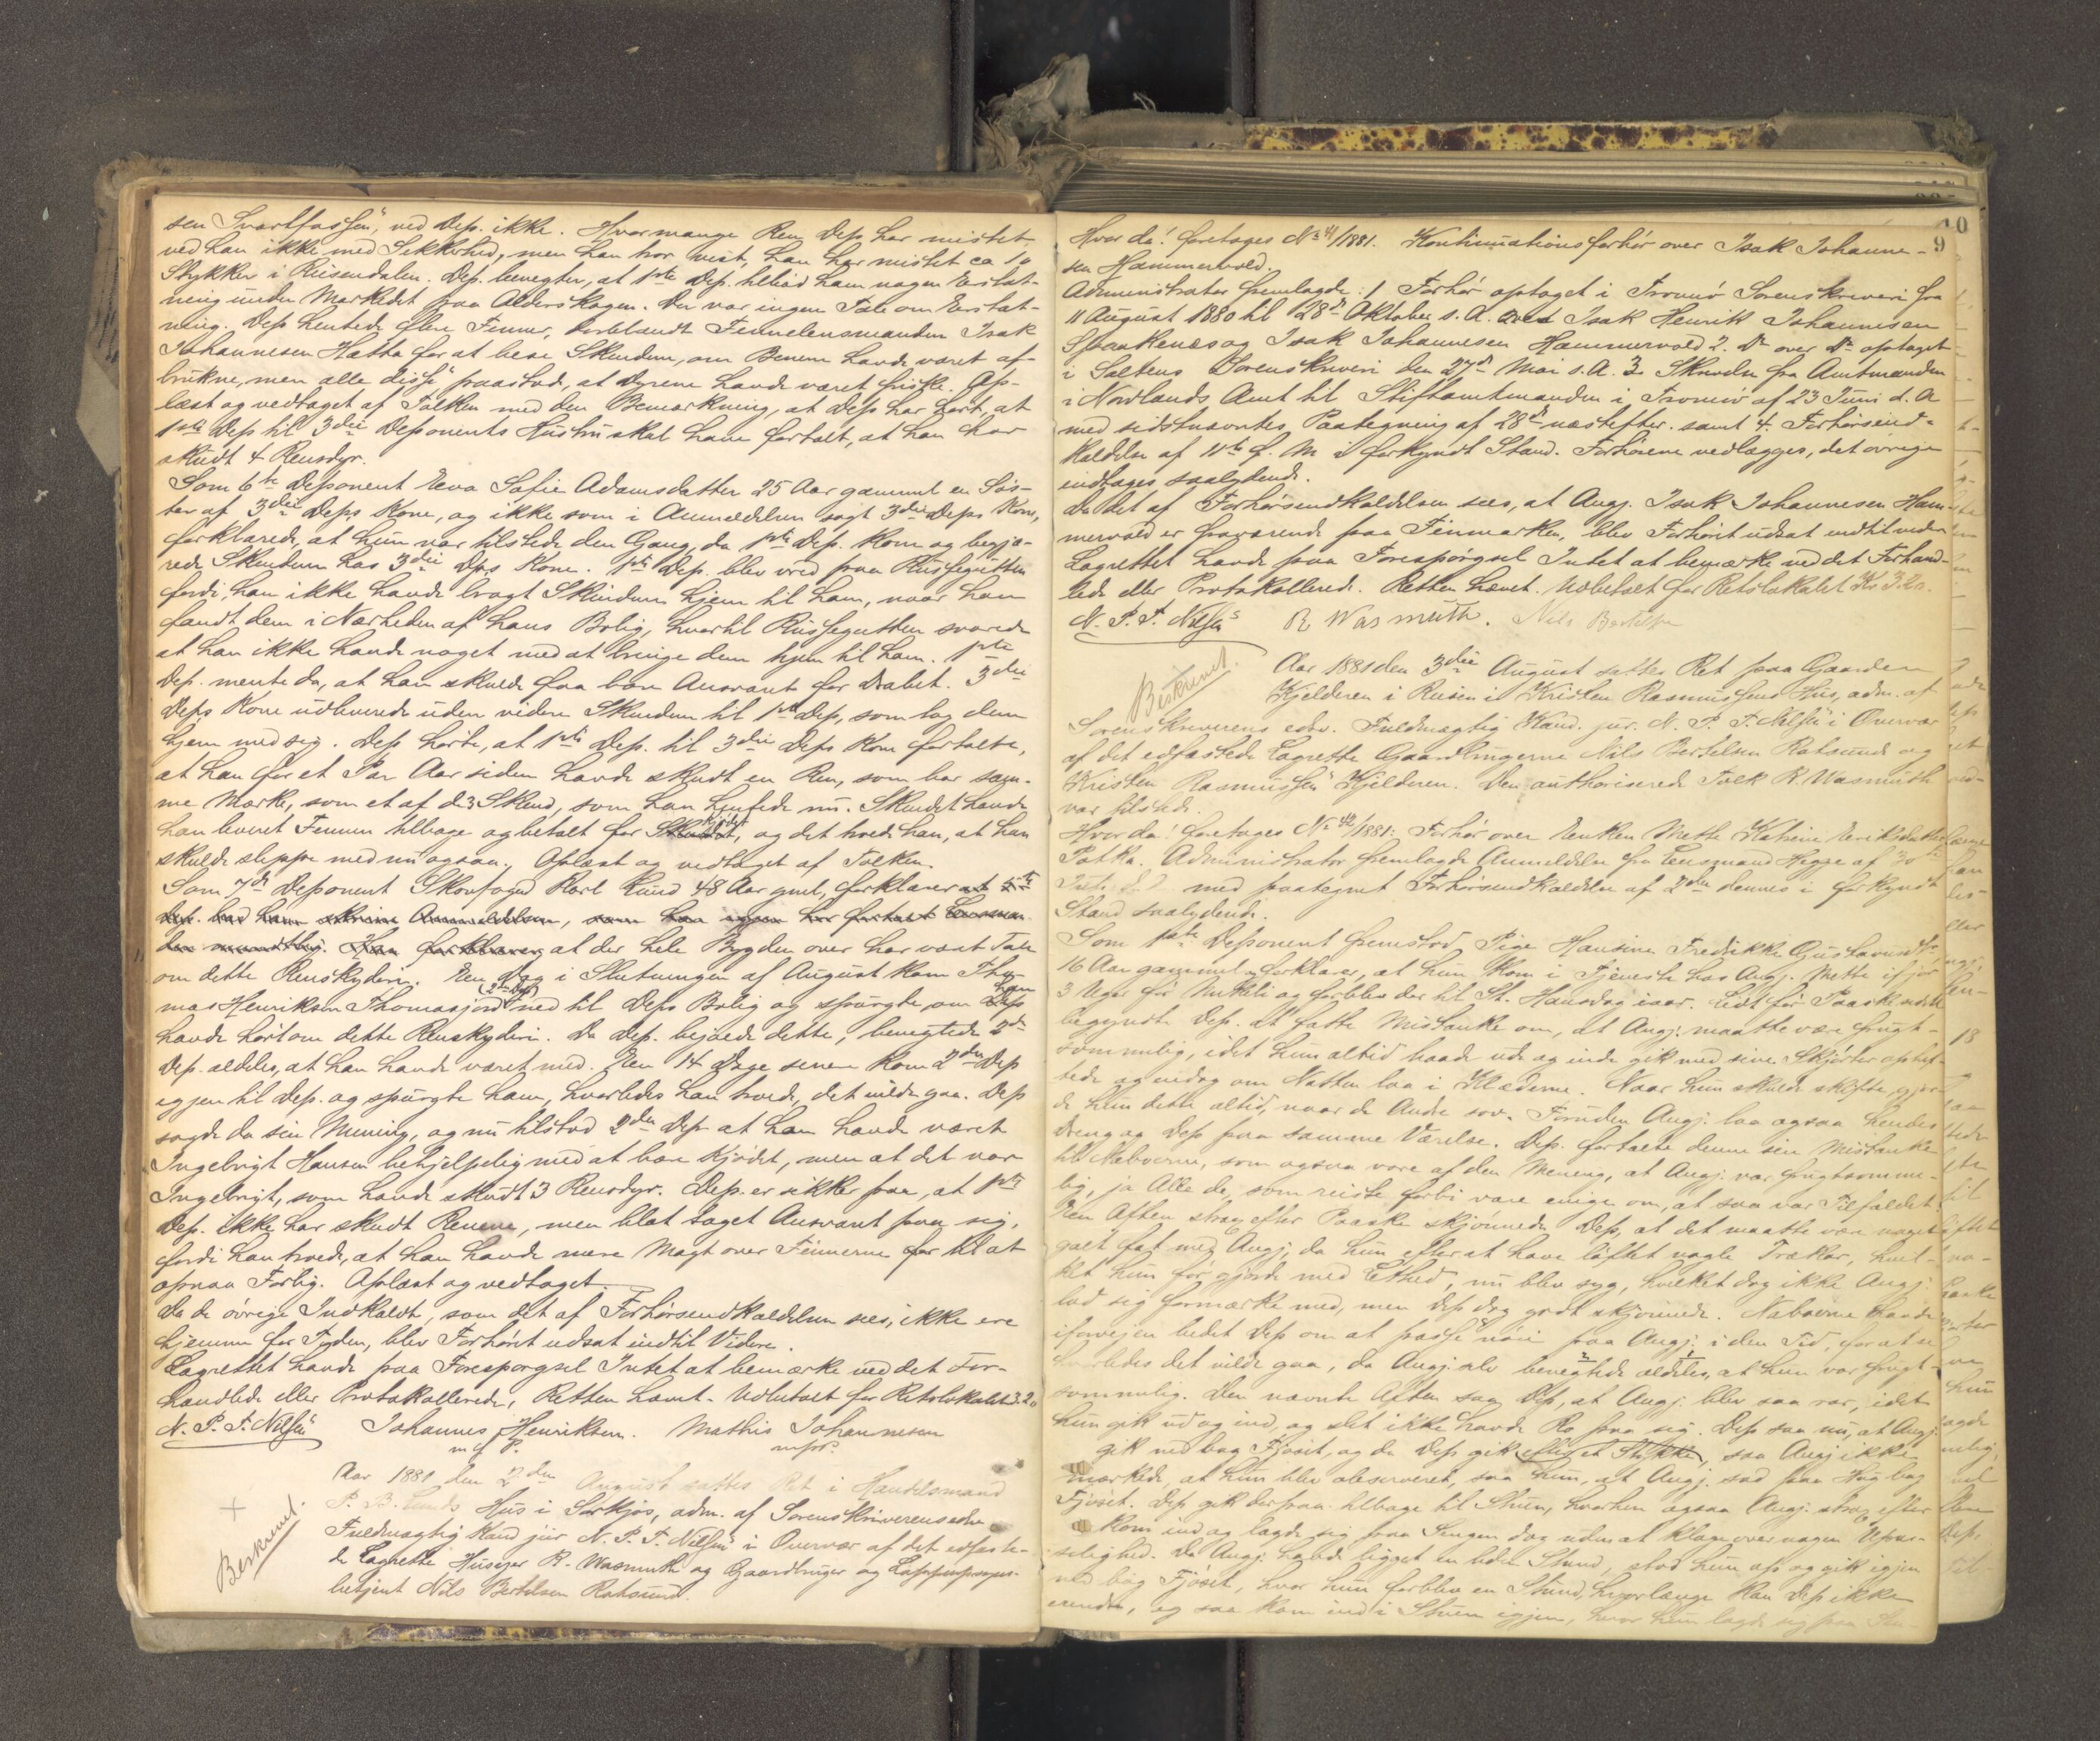 sen Svartfossen, ved Dep. ikke. Hvormange Ren Dep. har mistet
ved han ikke med Sikkerhed, men han tror vist, han har mistet ca 10
Stykker i Reisendalen. Dep. benegter, at 1ste Dep. tilbød ham nogen Erstat-
ning under Markedet paa Alderskogen. Der var ingen Tale om Erstat-
ning. Dep hentede flere Finner, deriblandt Finnelensmanden Isak
Johannesen Hætta for at bese Skindene, om Benene havde været af-
brukne, men alle disse paastod, at Dyrene havde været friske. Op-
læst og vedtaget af Tolken med den Bemærkning, at Dep har hørt, at
1ste Dep til 3die Deponents Hustru skal have fortalt, at han har
skudt 4 Rensdyr.
Som 6te Deponent Eva Sofie Adamsdatter 25 Aar gammel en Søs-
ter af 3die Deps Kone, og ikke som i Anmeldelsen sagt 3die Deps Kone,
forklarede, at hun var tilstede den Gang, da 1ste Dep. kom og begjæ-
rede Skindene hos 3die Deps Kone. 1ste Dep. blev vred paa Russegutten
fordi han ikke havde bragt Skindene hjem til ham, naar han
fandt dem i Nærheden af hans Bolig, hvortil Russegutten svarede
at han ikke havde noget med at bringe dem hjem til ham. 1ste
Dep. mente da, at han skulde faa bære Ansvaret for Drabet. 3die
Deps Kone udleverede uden videre Skindene til 1ste Dep, som tog dem
hjem med sig. Dep hørte, at 1ste Dep. til 3die Deps Kone fortalte,
at han for et Par Aar siden havde skudt en Ren, som bar sam-
me Mærke, som et af de 3 Skind, som han hentede nu. Skindet havde
han leveret Finnen tilbage og betalt for Skindet Kjødet, og det troede han, at han
skulde slippe med nu ogsaa. Oplæst og vedtaget af Tolken.
Som 7de Deponent Skovfoged Karl Lund 48 Aar gml, forklarer at 5te
Dep. bad ham skrive Anmeldelsen, som han igjen har fortalt Lensman-
den mundtlig. Han forklarer, at der hele Bygden over har været Tale
om dette Renskyderi. En Dag i Slutningen af August kom Tho-
mas Henriksen Thomasjord (2den Dep) ned til Deps Bolig og spurgte, om Dep ham
havde hørt om dette Renskyderi. Da Dep. bejaede dette, benegtede 2den
Dep. aldeles, at han havde været med. En 14 Dage senere kom 2den Dep
igjen til Dep. og spurgte ham, hvorledes han troede, det vilde gaa. Dep
sagde da sin Mening, og nu tilstod 2den Dep at han havde været
Ingebrigt Hansen behjelpelig med at bære Kjødet, men at det var
Ingebrigt, som havde skudt 3 Rensdyr. Dep. er sikker paa, at 1ste
Dep. ikke har skudt Renene, men blot taget Ansvaret paa sig,
fordi han troede, at han havde mere Magt over Finnerne for til at
opnaa Forlig. Oplæst og vedtaget.
Da de øvrige Indkaldte, som det af Forhørsindkaldelsen sees, ikke ere
hjemme for Tyden, blev Forhøret udsat indtil Videre.
Lagrettet havde paa Forespørgsel Intet at bemærke ved det For-
handlede eller Protokollerede, Retten hævet. Udbetalt for Retslokalet 3.20
N. P. T. Nilsen Johannes Henriksen. Mathis Johannesen
m f P. m f P.
Aar 1881 den 2den August sattes Ret i Handelsmand
P. B. Lunds Hus i Sørkjos, adm. af Sorenskriverens edsv
Fuldmægtig Kand jur N. P. T. Nilsen i Overvær af det edfæste-
de Lagrette Huseier R. Wasmuth og Gaardbruger og Lappeopsyns-
betjent Nils Bertelsen Rotsund.
Beskrevet.
9
10
Hvor da! foretages No 41/1881. Kontinuationsforhør over Isak Johanne-
sen Hammervold.
Administrator fremlagde: 1 Forhør optaget i Tromsø Sorenskriveri fra
11 August 1880 til 28de Oktober s. A. over Isak Henrik Johannesen
Spaakenæs og Isak Johannesen Hammervold 2. Do over Do optaget
i Saltens Sorenskriveri den 27de Mai s. A. 3. Skrivelse fra Amtmanden
i Nordlands Amt til Stiftamtmanden i Tromsø af 23 Juni d. A
med sidstnævntes Paategning af 28de næstefter. samt 4. Forhørsind-
kaldelse af 11te f. M i forkyndt Stand. Forhørene vedlægges, det øvrige
indtages saalydende.
Da det af Forhørsindkaldelsen sees, at Angj. Isak Johannesen Ham-
mervold er fraværende paa Finmarken, blev Forhøret udsat indtil videre
Lagrettet havde paa Forespørgsel Intet at bemærke ved det Forhand-
lede eller Protokollerede. Retten hævet. Udbetalt for Retslokalet Kr 3.20.
N. P. T. Nilsen R Wasmuth. Nils Bertelsen
Beskrevet.
Aar 1881 den 3die August sattes Ret paa Gaarden
Kjelderen i Reisen i Kristen Rasmussens Hus, adm. af
Sorenskriverens edsv. Fuldmægtig Kand. jur. N. P. T. Nilsen i Overvær
af det edfæstede Lagrette Gaardbrugerne Nils Bertelsen Rotsund og
Kristen Rasmussen Kjelderen. Den authoriserede Tolk R. Wasmuth
var tilstede.
Hvor da! foretages No 42/1881: Forhør over Enken Mette Katrine Eriksdatter
Potka. Administrator fremlagde Anmeldelse fra Lensmand Higge af 30te
med paategnet Forhørsindkaldelse af 2den dennes i forkyndt
Stand saalydende.
Som 1ste Deponent fremstod Pige Hansine Fredrikke Gustavsdtr
16 Aar gammel, forklarer, at hun kom i Tjeneste hos Angj. Mette ifjor
3 Uger før Mikkeli og forblev der til St. Hansdag iaar. Lidt før Paaske
begyndte Dep. at fatte Mistanke om, at Angj. maatte være frugt-
sommelig, idet hun altid baade ude og inde gik med sine Skjørter ophef-
tede og endog om Natten laa i Klæderne. Naar hun skulde skifte, gjor-
de hun dette altid, naar de Andre sov. Foruden Angj. laa ogsaa hendes
Dreng og Dep paa samme Værelse. Dep. fortalte denne sin Mistanke
til Naboerne, som ogsaa vare af den Mening, at Angj. var frugtsomme-
lig, ja Alle de, som reiste forbi vare enige om, at saa var Tilfældet.
Een Aften strax efter Paaske skjønnede Dep, at det maatte være noget
galt fat med Angj, da hun efter at have løftet nogle Trækar, hvil-
ket hun før gjorde med Lethed, nu blev syg, hvilket dog ikke Angj.
lod sig formærke med, men Dep dog godt skjønnede. Naboerne havde
iforveien bedet Dep om at passe nøie paa Angj. i den Tid, for at se
hvorledes det vilde gaa, da Angj. selv benegtede aldeles, at hun var frugt-
sommelig. Den nævnte Aften saa Dep, at Angj. blev saa rar, idet
hun gik ud og ind, og slet ikke havde Ro paa sig. Dep saa nu, at Angj.
gik ned bag Fjøset, og da Dep gik efter et Stykke, saa Angj ikke
mærkede, at hun blev observeret, saa hun, at Angj. sad paa Hug bag
Fjøset. Dep gik derfra tilbage til Stuen, hvorhen ogsaa Angj. strax efter
kom ind og lagde sig paa Sengen dog uden at klage over nogen Upas-
selighed. Da Angj. havde ligget en liden Stund, stod hun op og gik igjen
ned bag Fjøset, hvor hun forblev en Stund, hvorlænge kan Dep ikke
erindre, og saa kom ind i Stuen igjen, hvor hun lagde sig paa